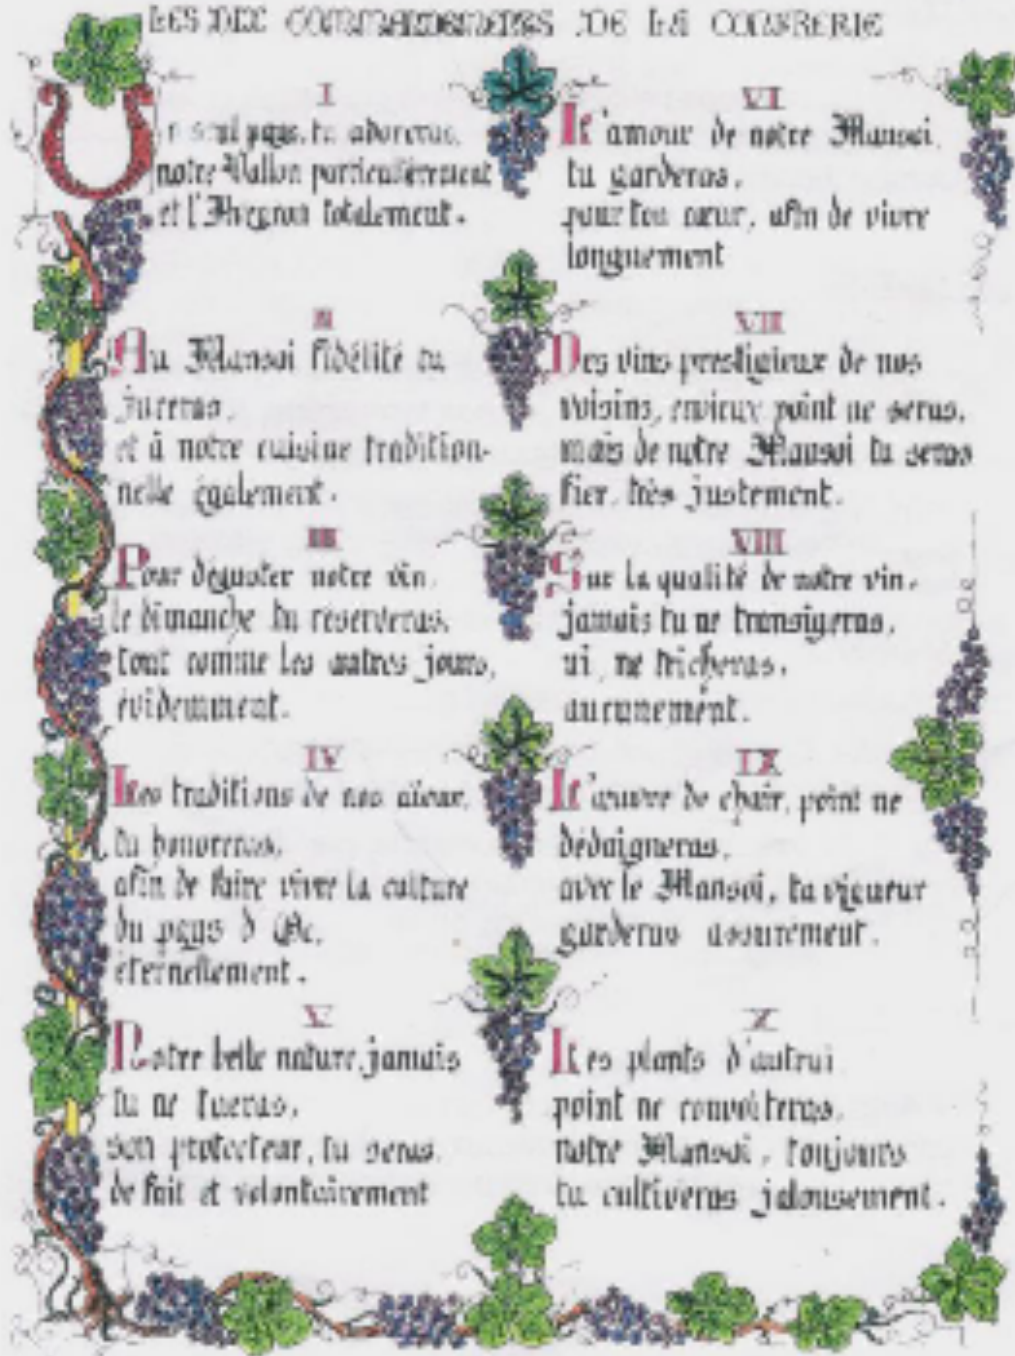 LES DIX COMMANDEMENTS DE LA CONFRERIE
I
Un seul pays, tu adoreras,
notre Vallon particulièrement
et l'Aveyron totalement.
II
Au Mansoi fidélité tu
jureras,
et à notre cuisine tradition-
nelle également.
III
Pour déguster notre vin,
le dimanche tu réserveras,
tout comme les autres jours,
évidemment.
IV
Les traditions de nos aïeux,
tu honoreras,
afin de faire vivre la culture
du pays d'Oc,
éternellement.
V
Notre belle nature, jamais
tu ne tueras,
son protecteur, tu seras,
de fait et volontairement
VI
L'amour de notre Mansoi,
tu garderas,
pour ton cœur, afin de vivre
longuement
VII
Des vins prestigieux de nos
voisins, envieux point ne seras,
mais de notre Mansoi tu seras
fier, très justement.
VIII
Sur la qualité de notre vin,
jamais tu ne transigeras,
ni, ne tricheras,
aucunement.
IX
L'œuvre de chair, point ne
dédaigneras,
avec le Mansoi, ta vigueur
garderas assurément.
X
Les plants d'autrui
point ne convoiteras,
notre Mansoi, toujours
tu cultiveras jalousement.